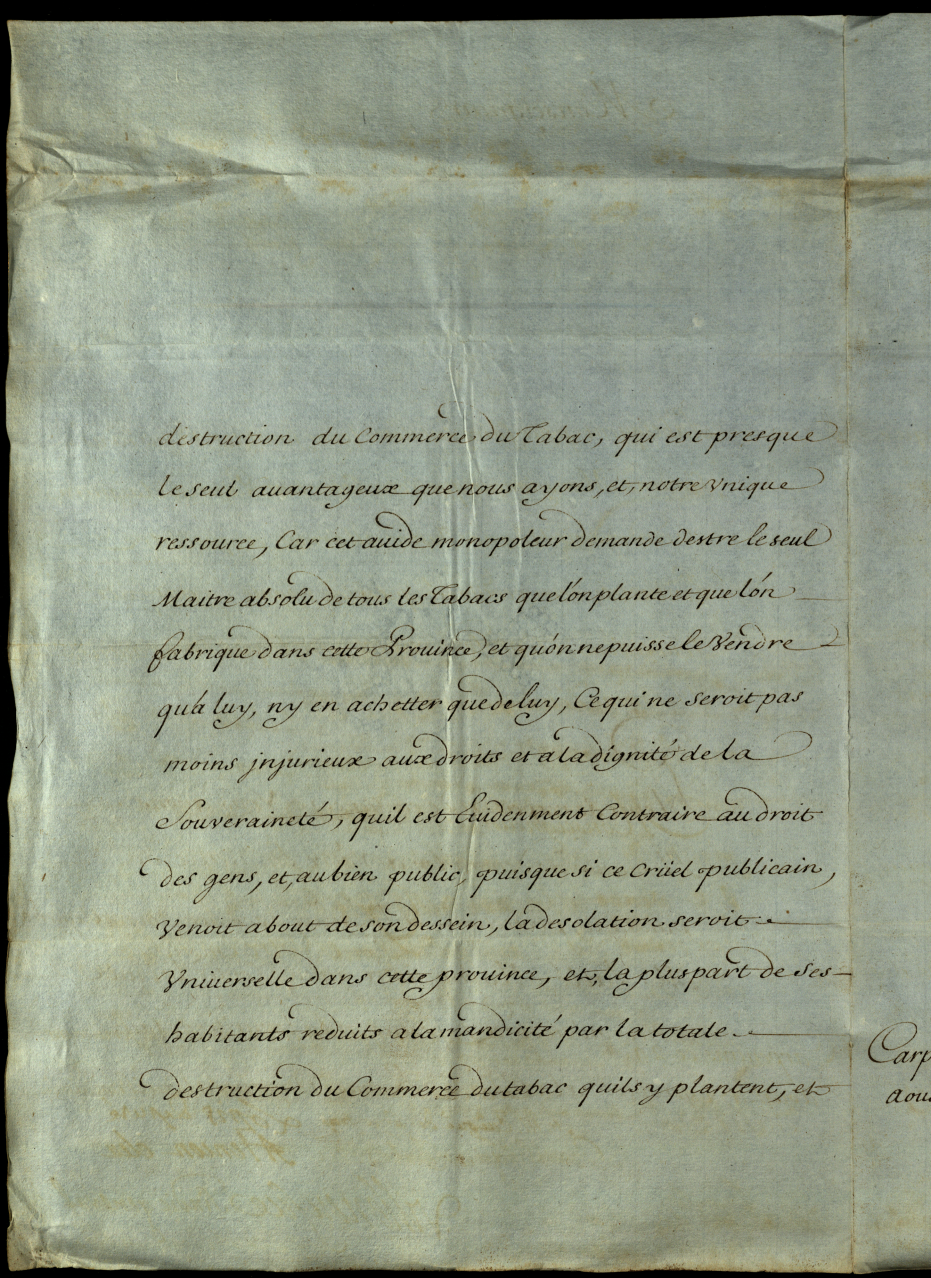 destruction du Commerce du Tabac, qui est presque
le seul auantageux que nous ayons, et, notre Vnique
ressource, Car cet auide monopoleur demande destre le seul
Maitre absolu de tous les Tabacs que l'ón plante et que l'ón
fabrique dans cette Prouince, et qu'ón ne puisse le Vendre
qu'à luy, ny en achetter que de luy, Ce qui ne seroit pas
moins jnjurieux aux droits et a la dignité de la
Souveraineté, quil est Euidenment Contraire au droit
des gens, et, au bien public, puisque si ce Crüel publicain,
Venoit about de son dessein, la desolation seroit
Vniuerselle dans cette prouince, et, la pluspart de ses
habitants reduits a la mandicité par la totale
destruction du Commerce du tabac quils y plantent, et
Carp
aous